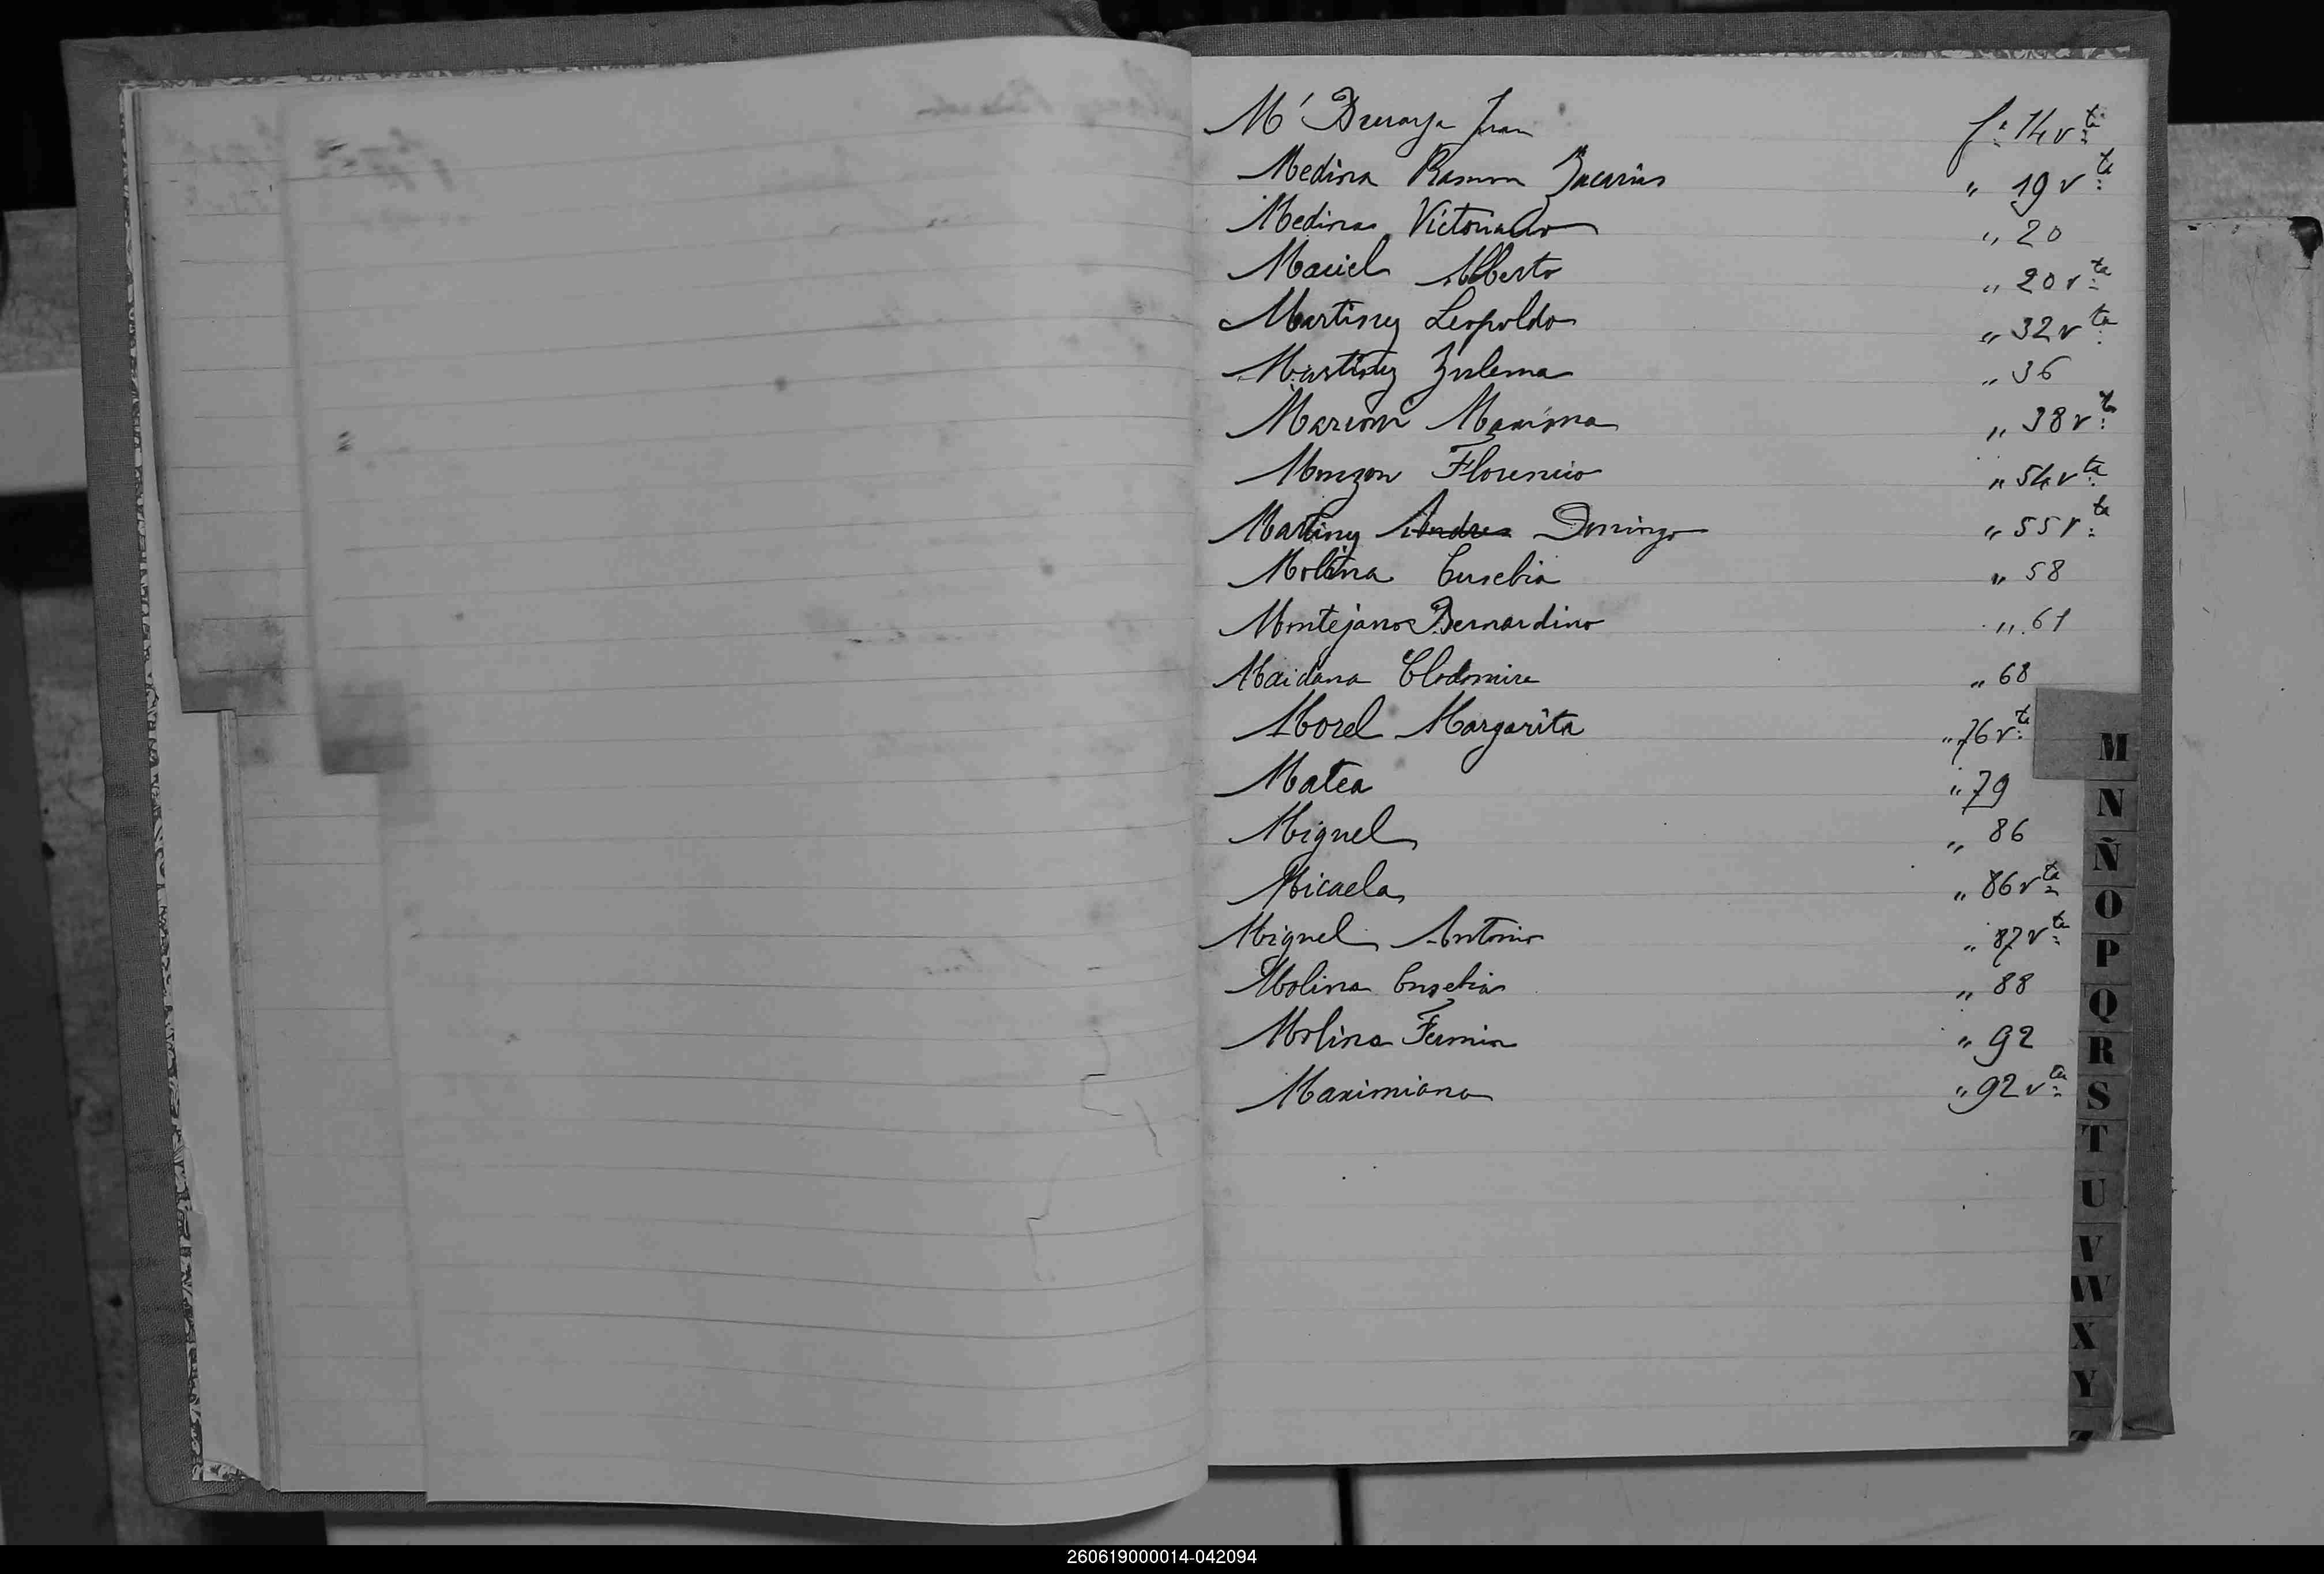 M' Juan fª 14 vta
Medina Ramon Zacarias " 19 vta
Medina Victoriano " 20
Maciel Alberto " 20 vta
Martinez Leopoldo " 32 vta
Martinez Zulema " 36
Marion Maxima " 38 vta
Monzon Florencio " 54 vta
Martinez Andres Domingo " 55 vta
Molina Eusebia " 58
Montejano Bernardino " 61
Maidana Clodomira " 68
Morel Margarita " 76 vta
Matea " 79
Miguel " 86
Micaela " 86 vta
Miguel Antonio " 87 vta
Molina Eusebia " 88
Molina Fermin " 92
Maximiana " 92 vta
M
N
Ñ
O
P
Q
R
S
T
U
V
W
X
Y
Z
260619000014-042094